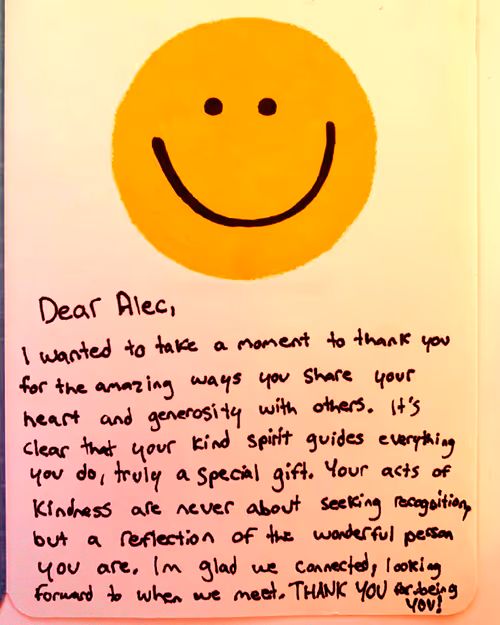 Dear Alec,
I wanted to take a moment to thank you
for the amazing ways you share your
heart and generosity with others. It's
clear that your kind spirit guides everything
you do, truly a special gift. Your acts of
kindness are never about seeking recognition,
but a reflection of the wonderful person
you are. Im glad we connected, looking
forward to when we meet. THANK YOU for being
YOU!